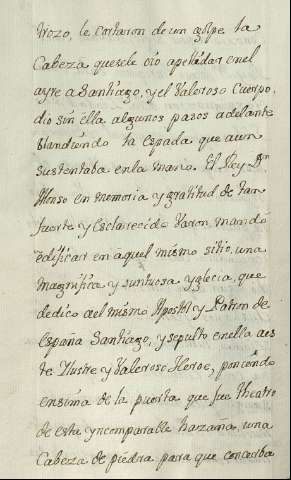 trozo, le cortaron de un golpe la
Cabeza que se le oió apellidar en el
ayre a Santiago, y el Valeroso Cuerpo,
dio sin ella algunos pasos adelante
blandiendo la espada que aun
sustentaba en la mano. El Rey Dn
Alonso en memoria y gratitud de tan
fuerte y Esclarecido Varon, mandó
edificar en aquel mismo sitio, una
magnifica y suntuosa yglecia, que
dedico a el mismo Apostol y Patron de
España Santiago, y sepulto en ella a es
te Ilustre y Valeroso Heroe, poniendo
ensima de la puerta que fue theatro
de esta yncomparable hazaña, una
Cabeza de piedra para que conserba